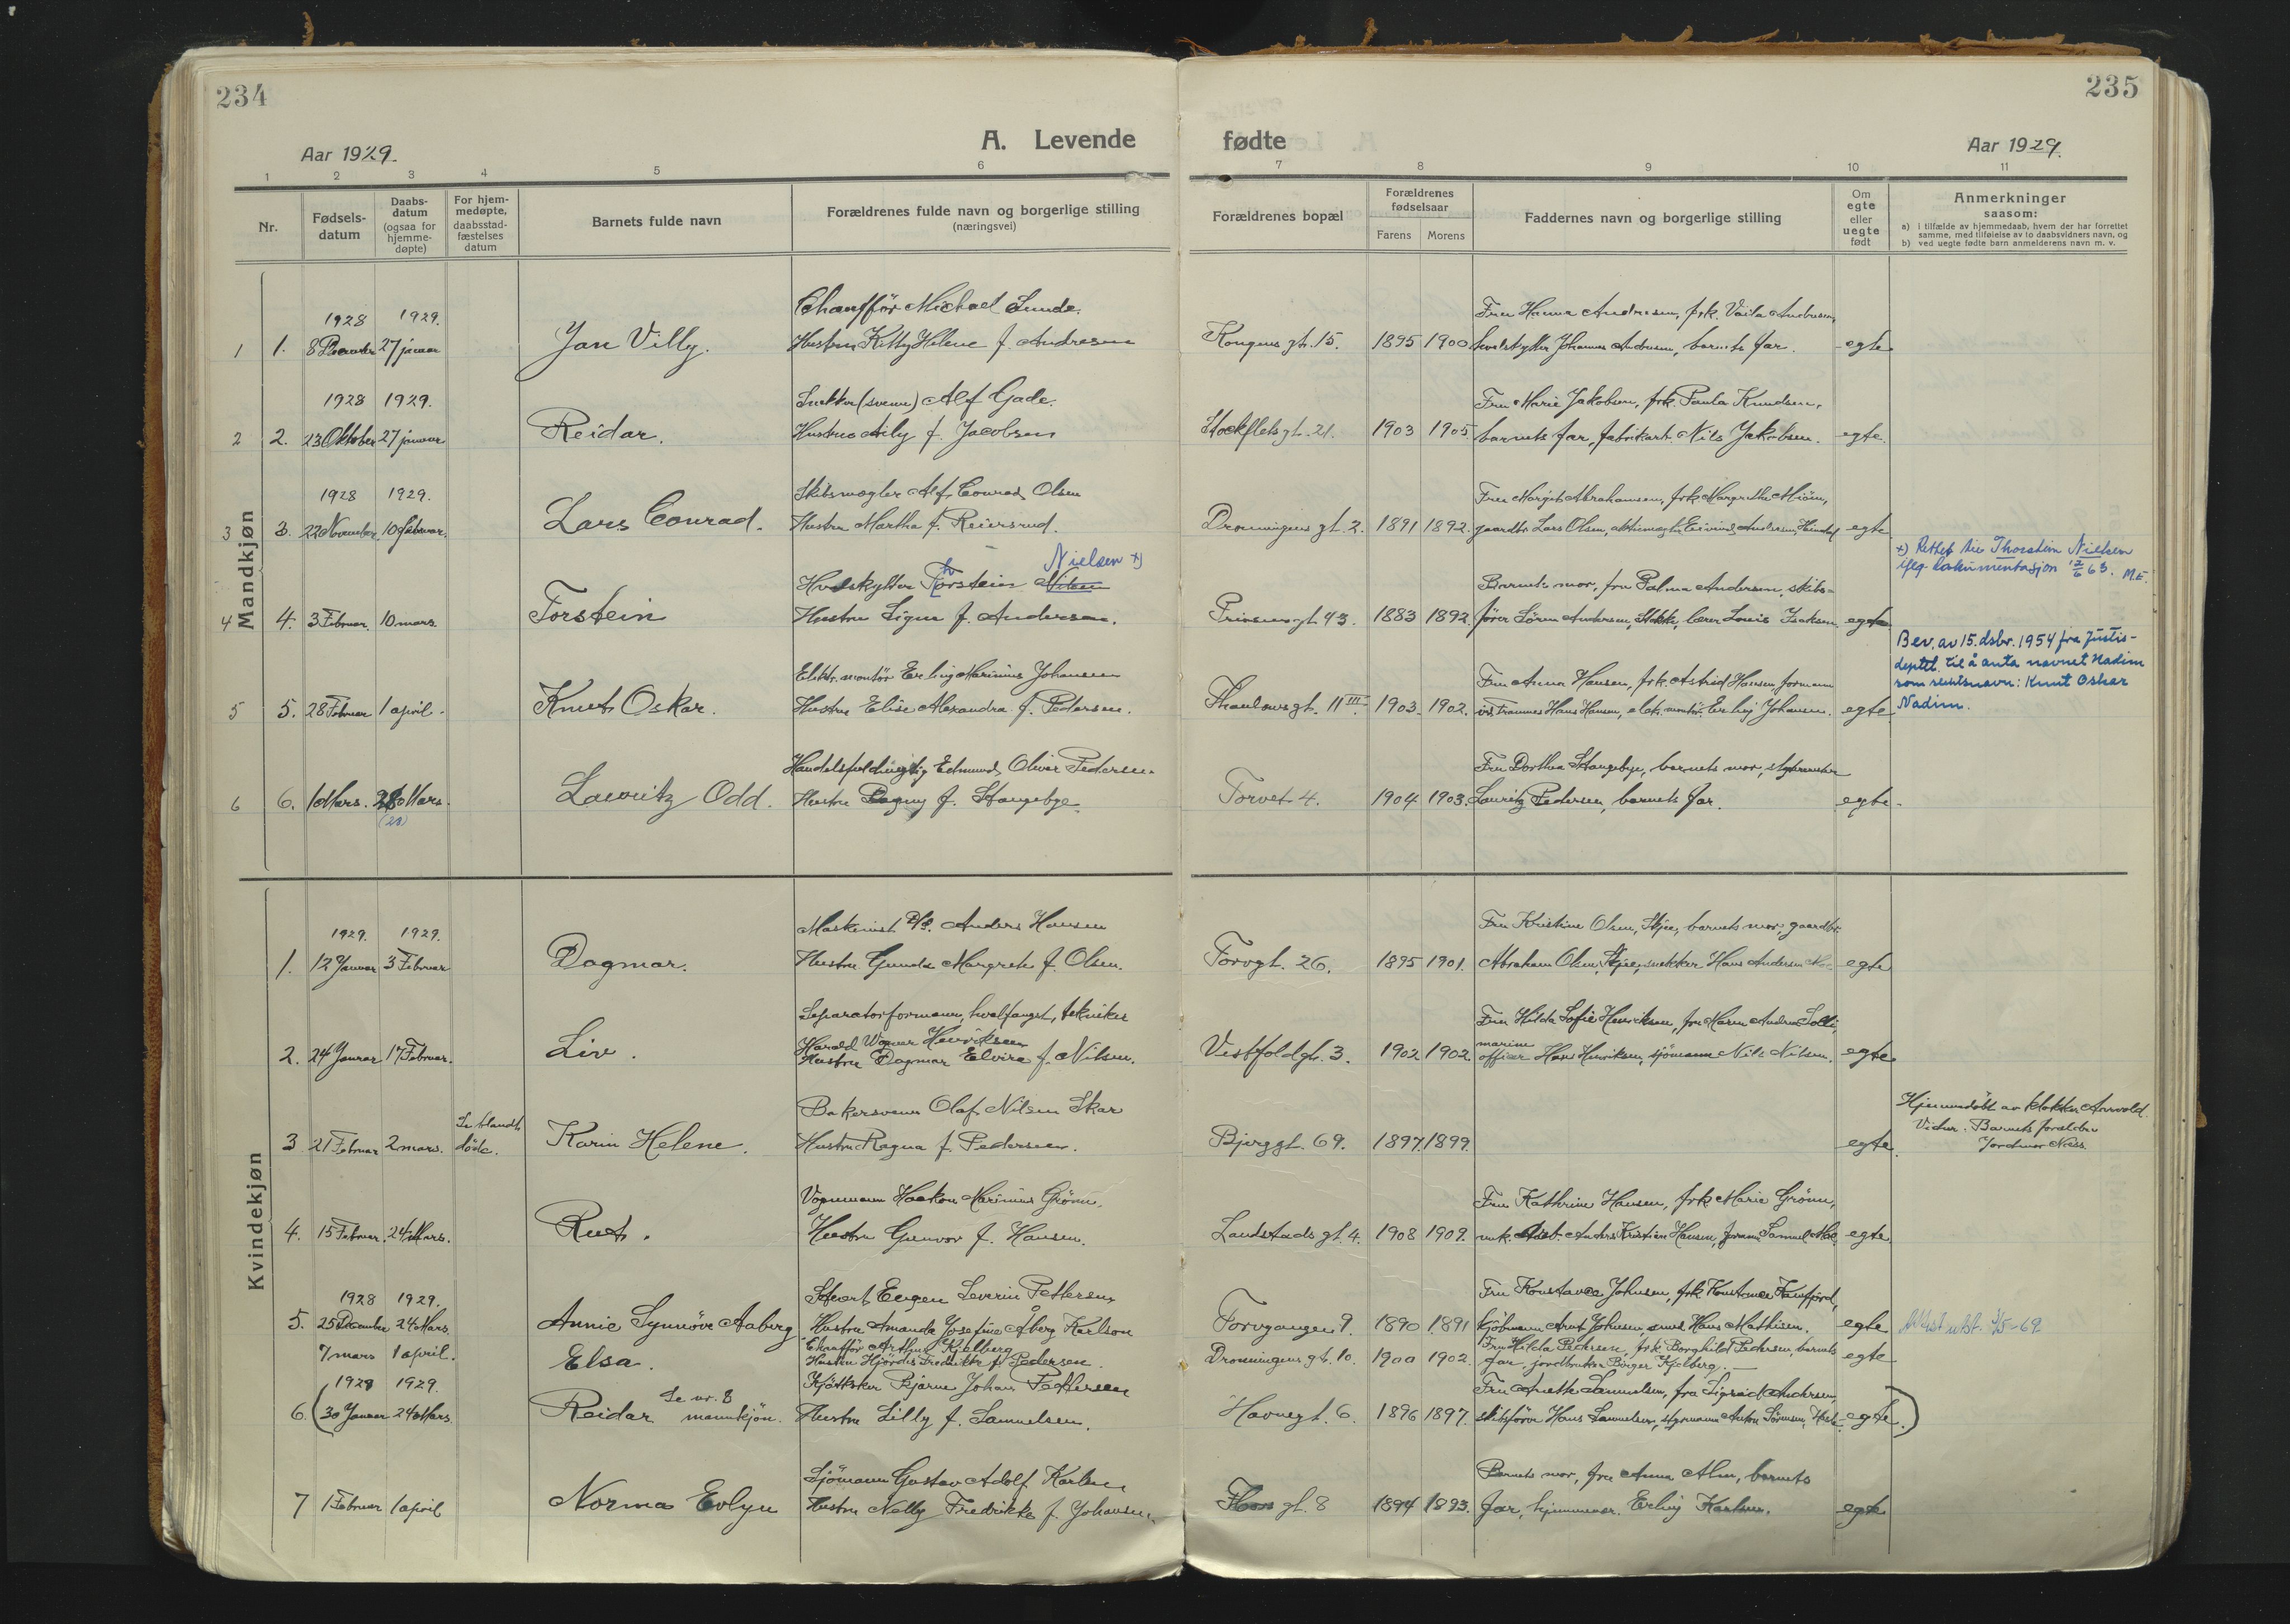 234
235
A. Levende fødte
Aar 1929.
Aar 1929.
1 2 3 4 5 6 7 8 9 10 11
Nr.
Fødsels-
datum
Daabs-
datum
(ogsaa for
hjemme-
døpte)
For hjem-
medøpte,
daabsstad-
fæstelses
datum
Barnets fulde navn
Forældrenes fulde navn og borgerlige stilling
(næringsvei)
Forældrenes bopæl
Forældrenes
fødselsaar
Farens Morens
Faddernes navn og borgerlige stilling
Om
egte
eller
uegte
født
Anmerkninger
saasom:
a) i tilfælde av hjemmedaab, hvem der har forrettet
samme, med tilføielse av to daabsvidners navn, og
b) ved uegte fødte barn anmelderens navn m. v.
Mandkjøn
1928 1929. Chauffør Michael Lunde. Fru Hanna Andresen, frk. Vaila Andresen,
1 1. 8 December 27 januar Jan Villy. Hustru Kitty Helene f. Andresen Kongens gt. 15. 1895 1900 hvalskytter Johannes Andresen, barnets far. egte
1928 1929. Snekker (svenn) Alf Gade. Fru Marie Jakobsen, frk. Paula Knudsen,
2 2. 23 Oktober 27 januar Reidar. Hustru Aily f. Jacobsen Stockflets gt. 21. 1903 1905 barnets far, fabrikarb. Nils Jakobsen. egte.
1928 1929. Skibsmegler Alf Conrad Olsen Fru Margit Abrahamsen, frk Margrethe
3 3. 22 November 10 februar. Lars Conrad. Hustru Martha f. Reiersrud. Dronningens gt. 2. 1891 1892. gaardbr. Lars Olsen, Eivind Andersen, egte
Nielsen x)
x) Rettet til Thorstein Nielsen
iflg. dokumentasjon 12/6 63. M.E.
Hvalskytter Torstein Nilsen Barnets mor, fru Palma Andersen, skibs-
4 4. 3 Februar. 10 mars. Torstein Hustru Signe f. Andersen. Prinsensgt. 43. 1883 1892. fører Søren Andersen, Stokke, lærer Louis Isaksen. egte
Bev. av 15. dsbr. 1954 fra Justis-
deptet. til å anta navnet Nadim
som slektsnavn: Knut Oskar
Nadim.
Elektr. montör Erling Marinius Johansen Fru Anna Hansen, frk. Astrid Hansen, formann
5 5. 28 Februar 1 april. Knut Oskar. Hustru Elise Alexandra f. Petersen. Thaulowsgt. 11 III. 1903. 1902. Hans Hansen, elek. montör Erling Johansen. egte
Handelsfuldmægtig Edmund Oliver Pedersen. Fru Dorthea Stangebye, barnets mor,
6 6. 1 Mars. 28 Mars. Lauritz Odd. Hustru Dagny f. Stangebye. Torvet 4. 1904 1903. Lauritz Pedersen, barnets far. egte.
(28)
Kvindekjøn
1929. 1929. Maskinist Anders Hansen Fru Kristine Olsen, barnets mor, gaardbr.
1. 12 Januar 3 Februar Dagmar. Hustru Gunda Margrete f. Olsen. Torvgt. 26. 1895 1901. Abraham Olsen, snekker Hans Andersen egte
Separatorformann, hvalfangst, tekniker Fru Hilda Sofie Henriksen, fru Maren Andrea Solli,
Harald Werner Henriksen marine
2. 24 Januar 17 Februar. Liv. Hustru Dagmar Elvira f. Nilsen. Vestfoldgt. 3. 1902 1902. officer Hans Henriksen, sjömann Nils Nilsen. egte
Se blandt Bakersvenn Olaf Nilsen Skar Hjemmedöbt av klokker Arnvold.
Vidner: Barnets forældre
3 21 Februar 2 mars. döde. Karin Helene. Hustru Ragna f. Pedersen. Bjerggt. 69. 1897. 1899. egte Jordmor Næss.
Vognmann Haakon Marinius Grönn. Fru Kathrine Hansen, frk Marie Grönn,
4. 15 Februar. 24 Mars. Rut. Hustru Gunvor f. Hansen. Landstads gt. 4. 1908 1909. Anders Kristian Hansen, Samuel egte
1928 1929. Eugen Severin Pettersen Fru Konstance Johnsen, frk Konstance
5. 25 December 24 Mars. Annie Synnöve Aaberg Hustru Amanda Josefine Åberg Karlson Torvgangen 9. 1890 1891 kjöbmann Arnt Johnsen, Hans Mathisen. egte Attst utst. 7/5-69.
7 mars 1 april. Elsa. Chauffør Arthur Kjelberg Fru Hilda Pedersen, frk. Borghild Pedersen, barnets
Hustru Hjördis Fredrikke f. Pedersen. Dronningens gt. 10. 1900 1902. far, jordbruker Birger Kjelberg. egte
1929 1929. Se nr. 8 Kjöttsker Bjarne Johan Pettersen Fru Anette Samuelsen, fru Sigrid Andersen,
6. (30 Januar 24 Mars. Reidar mannkjön. Hustru Lilly f. Samuelsen. Havnegt. 6. 1896 1897. skibsfører Hans Samuelsen, styrmann Anton Sörensen, egte.)
Sjömann Gustav Adolf Karlsen Barnets mor, fru Anna Alm, barnets
7 1 Februar 1 april Norma Evlyn Hustru Nelly Fredrikke f. Johansen. gt. 8 1894 1893. far, Erling Karlsen. egte